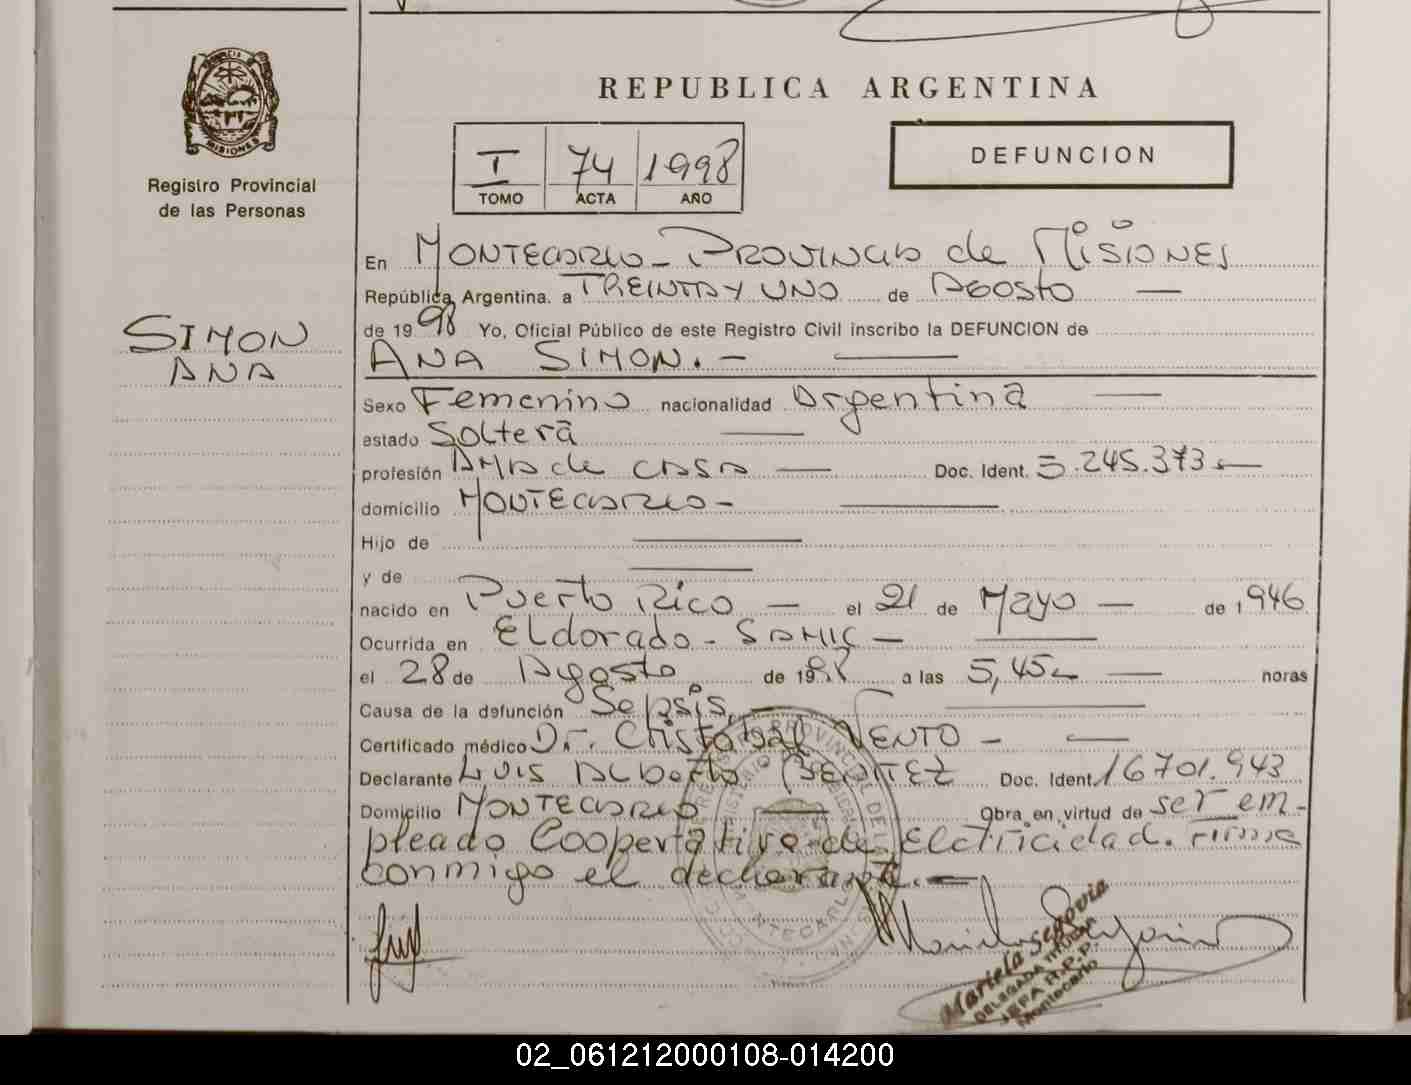 MISIONES
Registro Provincial
de las Personas
SIMON
ANA
REPUBLICA ARGENTINA
I 74 1998
TOMO ACTA AÑO
DEFUNCION
En MONTECARLO - PROVINCIA de MISIONES
República Argentina. a TREINTA Y UNO de AGOSTO —
de 19 98 Yo, Oficial Público de este Registro Civil inscribo la DEFUNCION de
ANA SIMON. — —
Sexo Femenino nacionalidad Argentina —
estado Soltera —
profesión AMA de CASA — Doc. Ident. 5.245.373 —
domicilio MONTECARLO — —
Hijo de —
y de —
nacido en Puerto Rico — el 21 de Mayo — de 1 946
Ocurrida en Eldorado - SAMIC — —
el 28 de Agosto de 19 98 a las 5,45 — horas
Causa de la defunción Sepsis. —
Certificado médico Dr. Cristobal VENTO — —
Declarante LUIS Alberto BENITEZ Doc. Ident. 16701.943
Domicilio MONTECARLO — Obra en virtud de ser em-
pleado Cooperativa de Electricidad. Firma
conmigo el declarante. —
Mariela Segovia
DELEGADA TITULAR
R.P.P.
Montecarlo
02_061212000108-014200